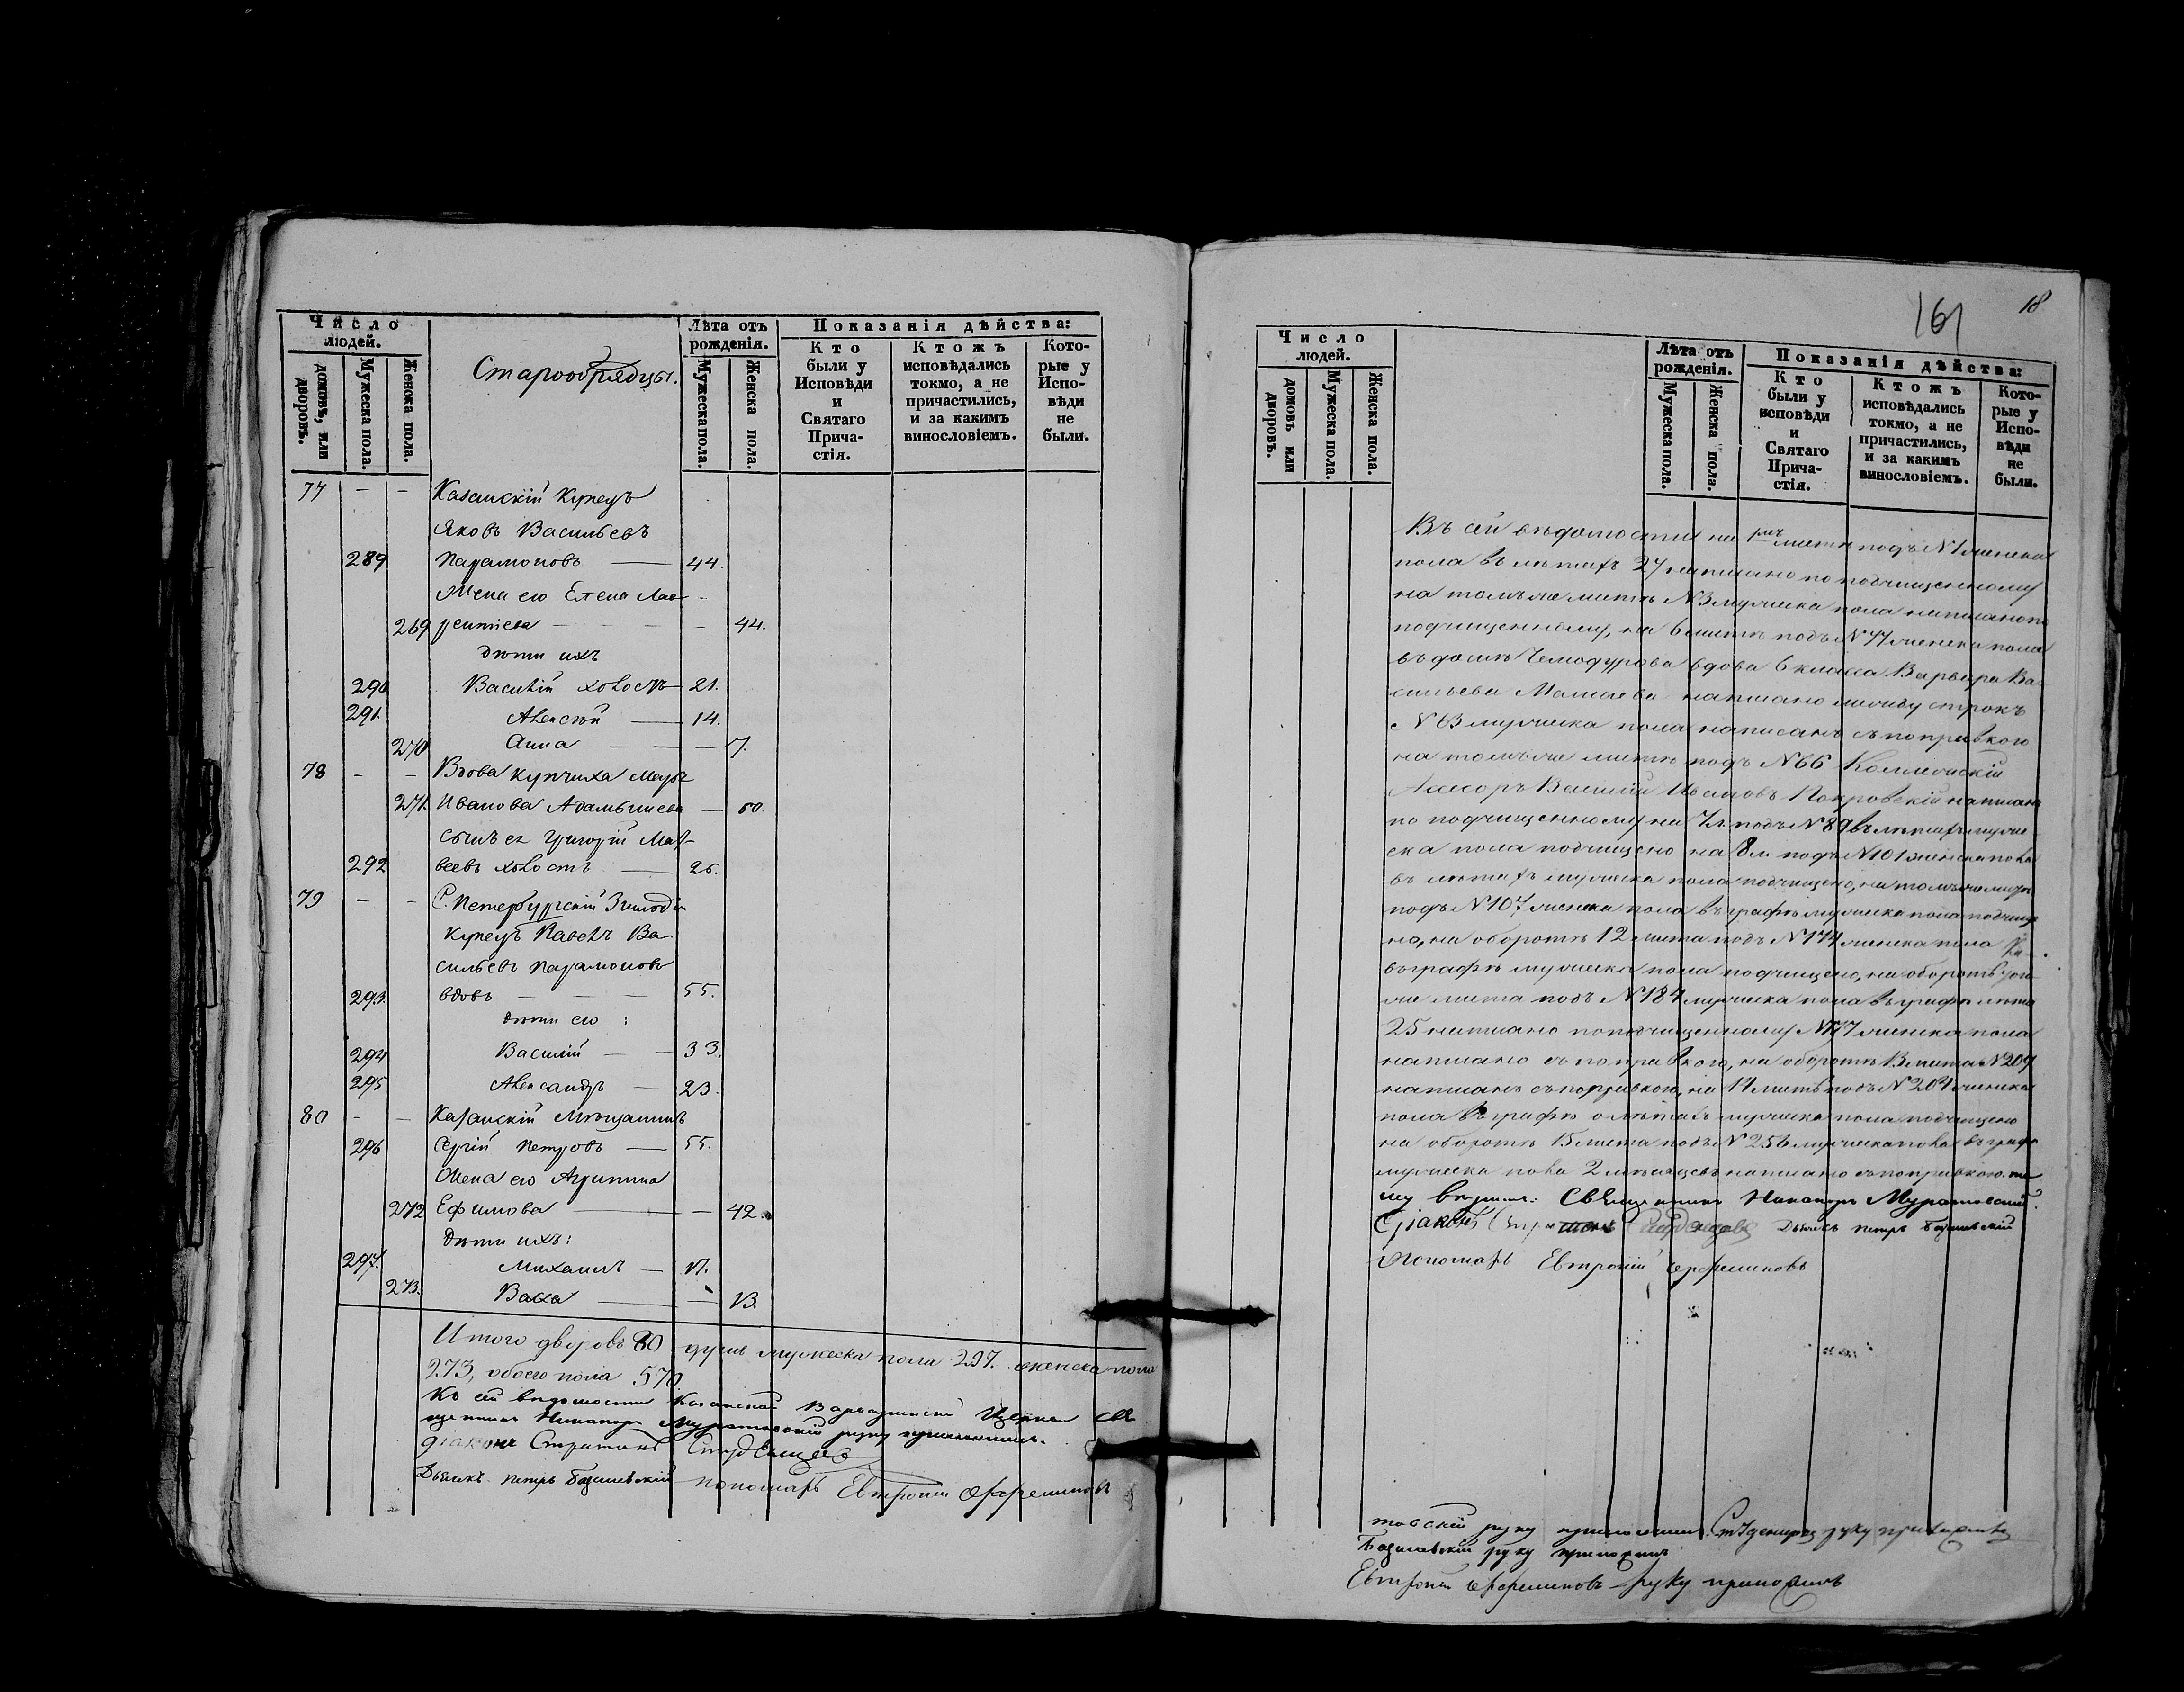 Число людей.
домовъ, или дворовъ.
Мужеска пола.
Женска пола.
Старообрядцы.
Лѣта отъ рожденія.
Мужеска пола.
Женска пола.
Показанія дѣйства:
Кто были у Исповѣди и Святаго Прича-стія.
Ктожъ исповѣдались токмо, а не причастились, и за какимъ винословіемъ.
Кото-рые у Испо-вѣди не были.
77 — — Казанскій Купецъ
Яковъ Васильевъ
289 Парамоновъ — 44.
Жена его Елена Лав-
269 рентiева — — — — 44.
дѣти ихъ
290 Василій холостъ 21.
291. Алексѣй — 14.
270 Анна — — — 7.
78 — — Вдова купчиха Марѳа
271. Иванова — 60.
сынъ ея Григорій Мат-
292 веевъ холостъ — 26.
79 — — С. Петербургскій 3 гильдіи
купецъ Павелъ Ва-
сильевъ Парамоновъ
293. вдовъ — — — 55.
дѣти его:
294 Василій — — 33.
295 Александръ — 23.
80 — — Казанскій Мѣщанинъ
296 Сергій Петровъ — 55.
Жена его Агрипина
272 Ефимова — — 42.
дѣти ихъ:
297. Михаилъ — 17.
273. Васса — — 13.
Итого дворовъ 80 душъ мужеска пола 297. женска пола
273, обоего пола 570.
Къ сей вѣдомости Казанской Варваринской Церкви Свя-
щенникъ Никаноръ руку приложилъ.
Діаконъ Стратонъ
Дьячекъ Петръ пономарь Евтропій Ефремовъ
161
18
Число людей.
домовъ или дворовъ.
Мужеска пола.
Женска пола.
Лѣта отъ рожденія.
Мужеска пола.
Женска пола.
Показанія дѣйства:
Кто были у исповѣди и Святаго Прича-стія.
Ктожъ исповѣдались токмо, а не причастились, и за какимъ винословіемъ.
Кото-рые у Испо-вѣди не были.
Въ сей вѣдомости на 1мъ листѣ подъ № 1 женска
пола въ лѣтахъ 27 написано по подчищенному
на томъ же листѣ № 3 мужеска пола написано по
подчищенному, на 6 листѣ подъ № 77 женска пола
въ домѣ Чемодурова вдова 6 класса Варвара Ва-
сильева написано между строкъ
№ 63 мужеска пола написанъ съ поправкою
на томъ же листѣ подъ № 66 Коллежскій
Ассесоръ Василій Ивановъ Покровскій написанъ
по подчищенному на 7 л. подъ № 89 въ лѣтахъ муже-
ска пола подчищено на 8 л. подъ № 101 женска пола
въ лѣтахъ мужеска пола подчищено, на томъ же листѣ
подъ № 107 женска пола въ графѣ мужеска пола подчище-
но, на оборотѣ 12 листа подъ № 174 женска пола
въ графѣ мужеска пола подчищено, на оборотѣ того
же листа подъ № 184 мужеска пола въ графѣ лѣта
25 написано по подчищенному № 177 женска пола
написано съ поправкою, на оборотѣ 13 листа № 209
написанъ съ поправкою, на 14 листѣ подъ № 204 женска
пола въ графѣ о лѣтахъ мужеска пола подчищено
на оборотѣ 15 листа подъ № 256 мужеска пола въ графѣ
мужеска пола 2 мѣсяцевъ написано съ поправкою.
Священникъ Никаноръ
Діаконъ Дьячекъ Петръ
Пономарь Евтропій Ефремовъ
руку приложилъ. руку приложилъ
руку приложилъ
Евтропій Ефремовъ руку приложилъ